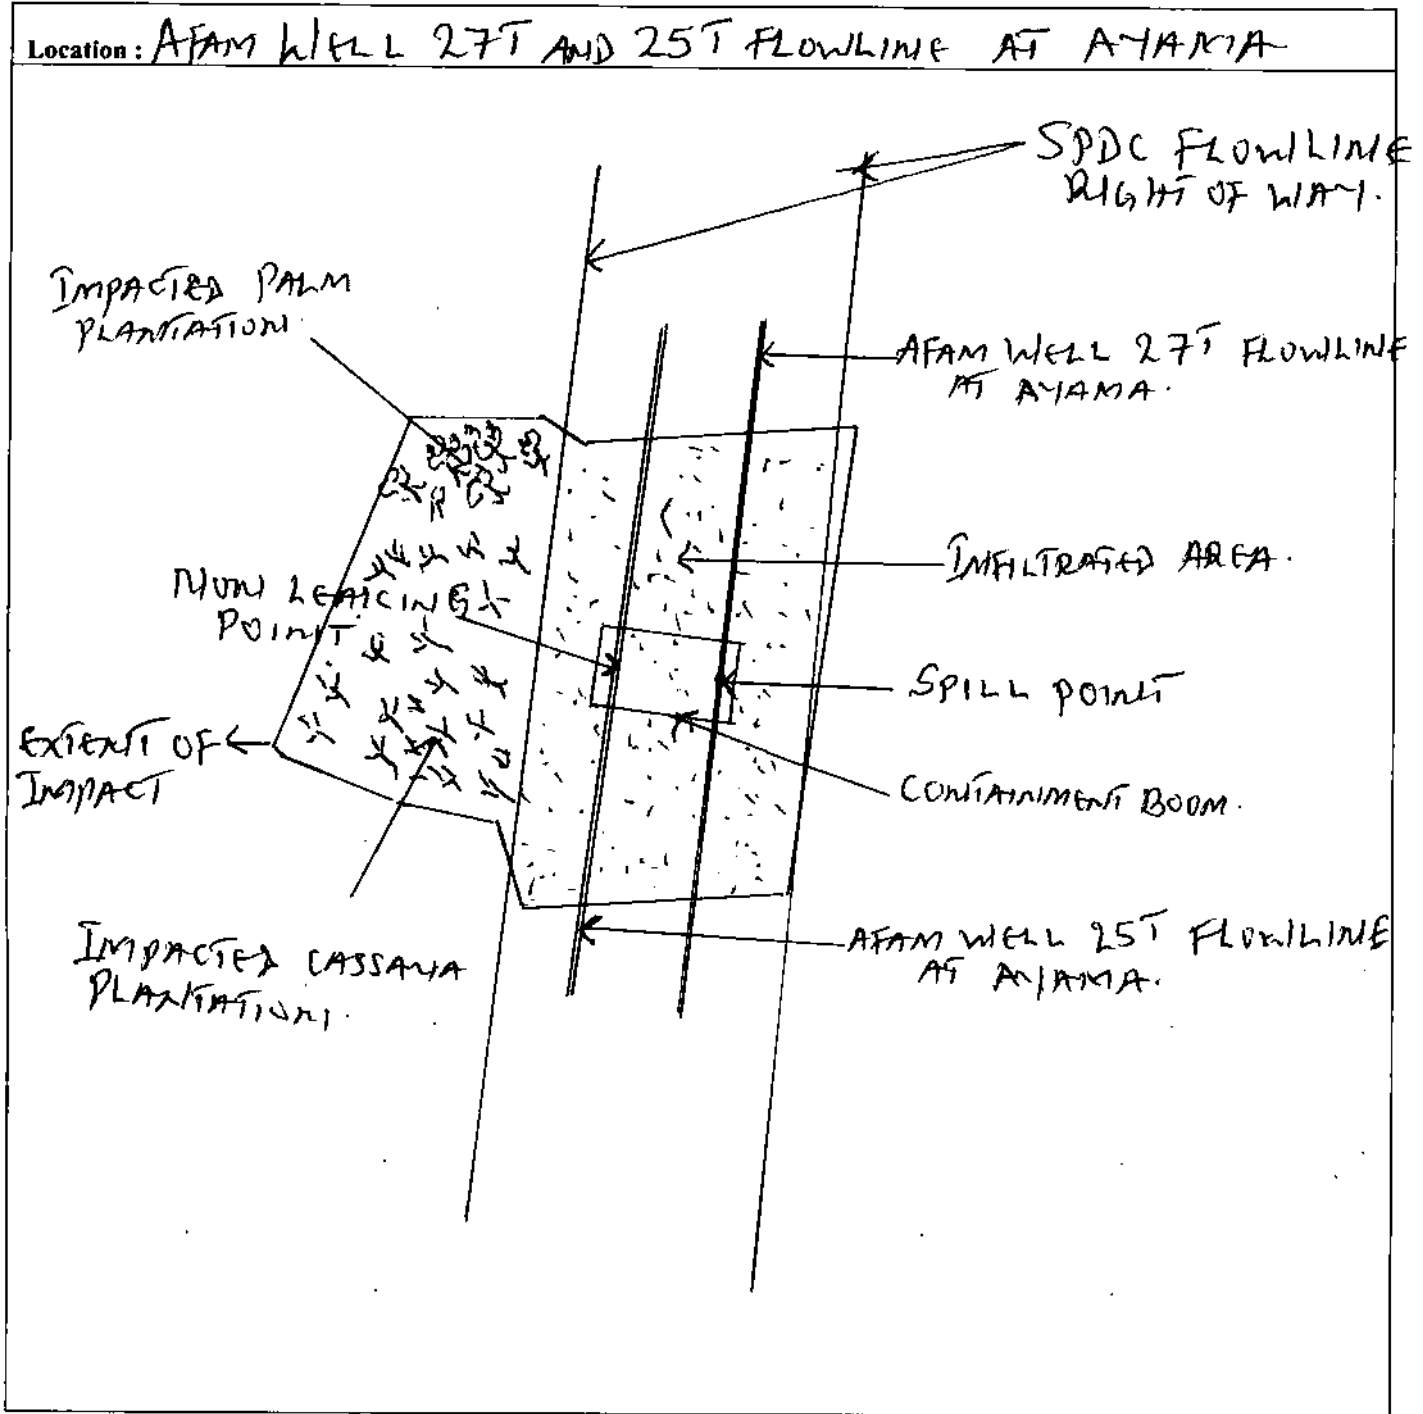 Location : AFAM WELL 27T AND 25T FLOWLINE AT AYAMA
SPDC FLOWLINE
RIGHT OF WAY.
IMPACTED PALM
PLANTATION.
AFAM WELL 27T FLOWLINE
AT AYAMA.
INFILTRATED AREA.
NON LEAKING
POINT.
SPILL POINT
EXTENT OF
IMPACT
CONTAINMENT BOOM.
AFAM WELL 25T FLOWLINE
AT AYAMA.
IMPACTED CASSAVA
PLANTATION.